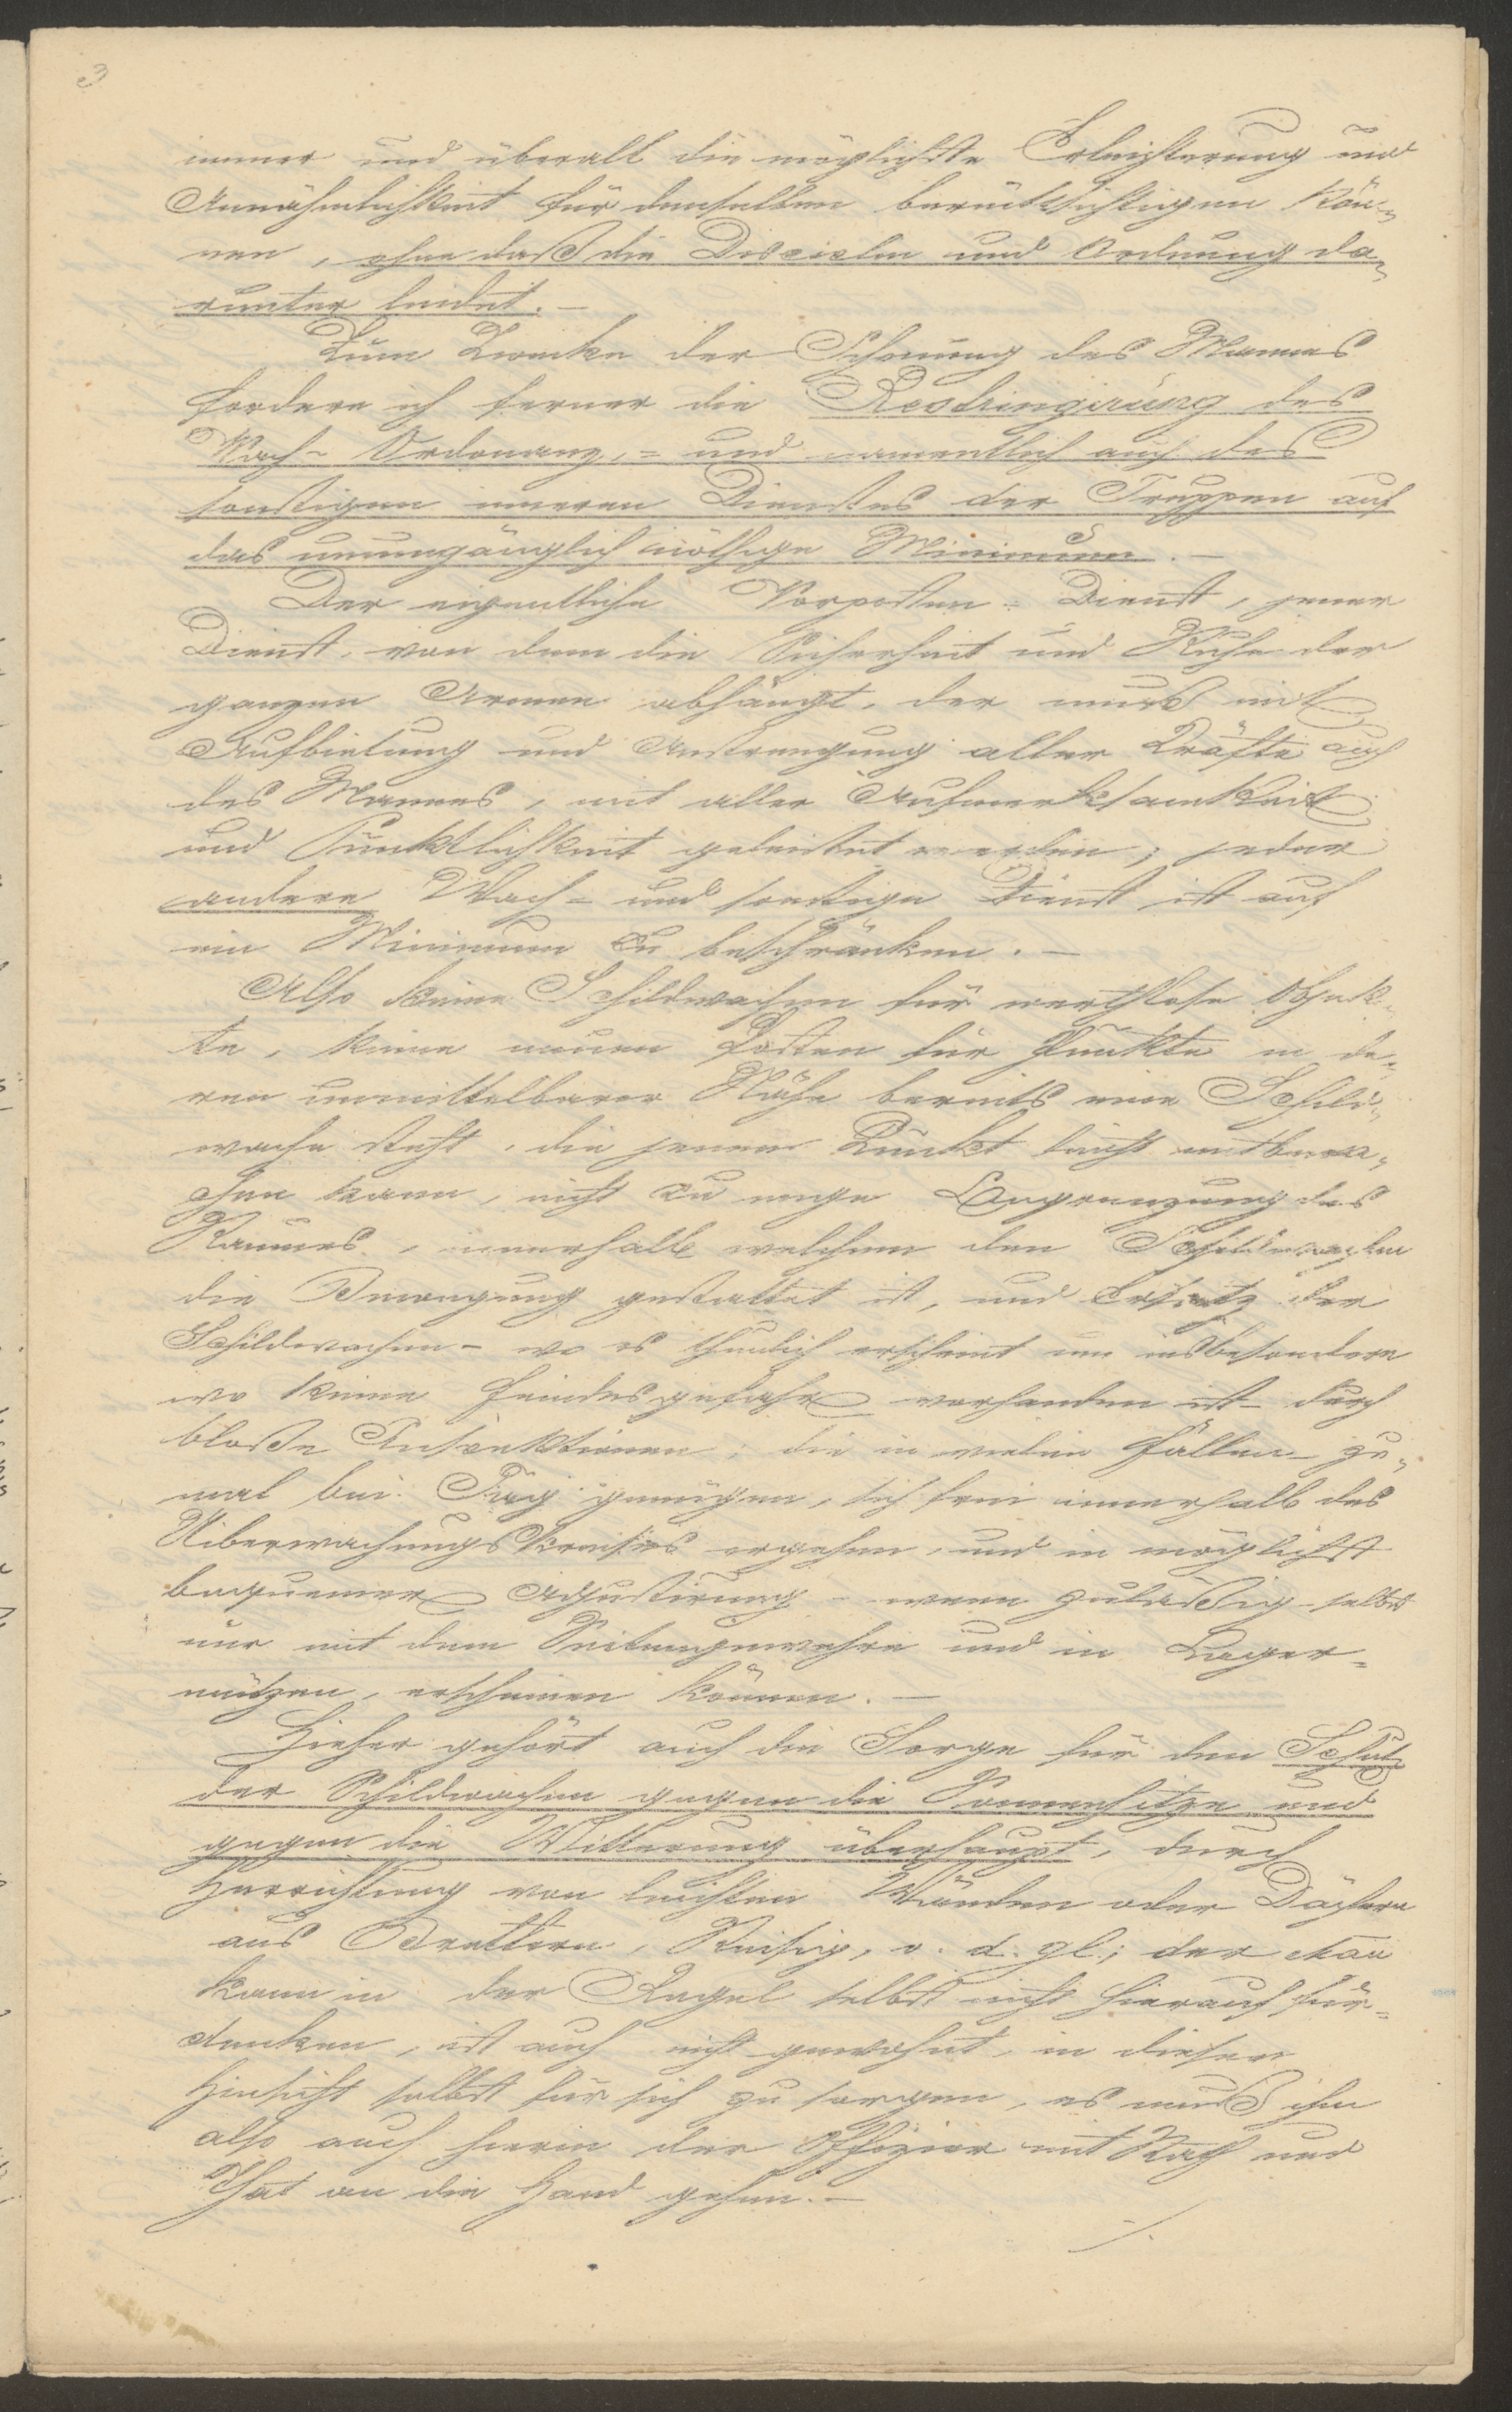 3
immer und überall die möglichste Erleichterung und
Annähmlichkeit für denselben berücksichtigen kön-
nen, ohne daß die Disciplin und Ordnung da-
runter leidet. –
Zum Zwecke der Schonung des Mannes
fordere ich ferner die Restringirung des
Wach- Ordonanz,- und namentlich auch des
sonstigen inneren Dienstes der Truppen auf
das unumgänglich nöthige Minimum. –
Der eigentliche Vorposten-Dienst, jener
Dienst, von dem die Sicherheit und Ruhe der
ganzen Armee abhängt, der muß mit
Aufbietung und Anstrengung aller Kräfte auch
des Mannes, mit aller Aufmerksamkeit
und Pünktlichkeit geleistet werden; jeder
andere Wach- und sonstige Dienst ist auf
ein Minimum zu beschränken. –
Also keine Schildwachen für werthlose Objek-
te, keine neuen Posten für Punkte in de-
ren unmittelbarer Nähe bereits eine Schild-
wache steht, die jenen Punkt leicht mitbewa-
chen kann, nicht zu enge Begrenzung des
Raumes, innerhalb welchem den Schildwachen
die Bewegung gestattet ist, und Ersatz der
Schildwachen – wo es thunlich erscheint und insbesondere
wo keine Feindesgefahr vorhanden ist – durch
bloße Inspektionen, die in vielen Fällen zu-
mal bei Tag genügen, sich frei innerhalb des
Uiberwachungskreises ergehen, und in möglichst
bequemer Adjustirung – wenn zuläßig – selbst
nur mit dem Seitengewehre und in Lager-
mützen, erscheinen können. –
Hieher gehört auch die Sorge für den Schutz
der Schildwachen gegen die Sonnenhitze und
gegen die Witterung überhaupt, durch
Herrichtung von leichten Wänden oder Dächern
aus Brettern, Reisig, u. d. gl.; der Man̄
kann in der Regel selbst nicht hierauf für-
denken, ist auch nicht gewohnt, in dieser
Hinsicht selbst für sich zu sorgen, es muß ihm
also auch hierin der Offizier mit Rath und
That an die Hand gehen. –
./.